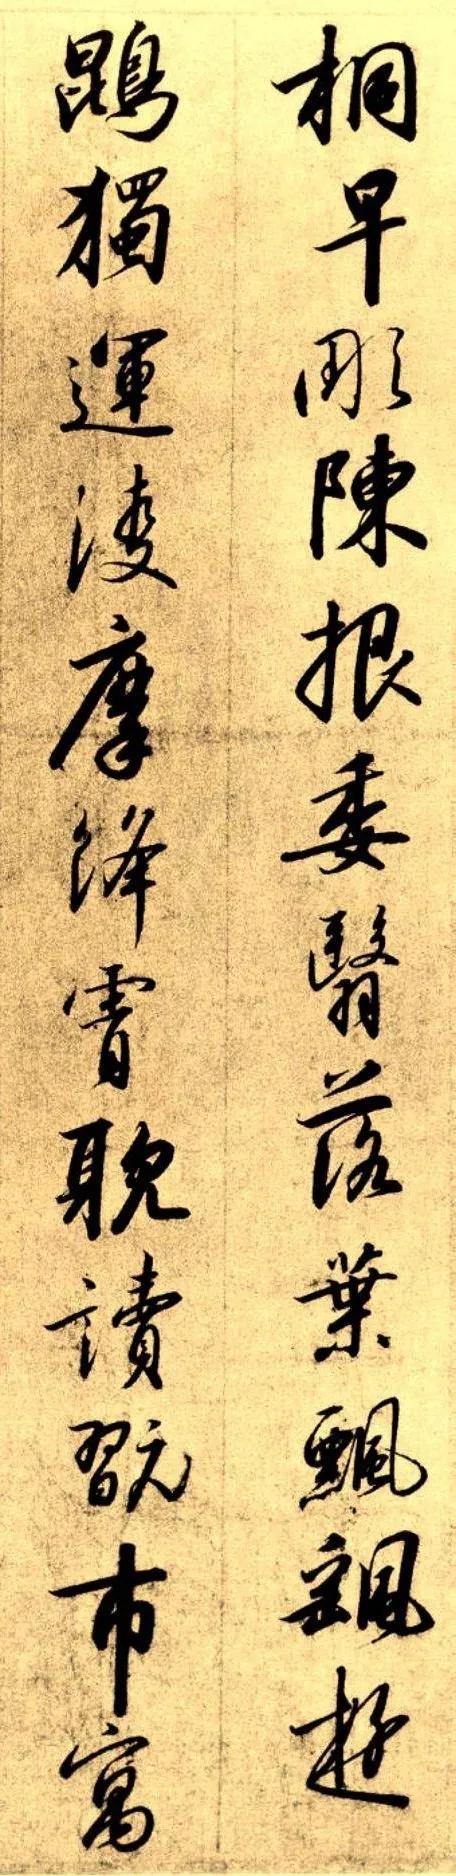 桐早彫陳根委翳落葉飄颻遊
鵾獨運淩摩絳霄耽讀翫市寓